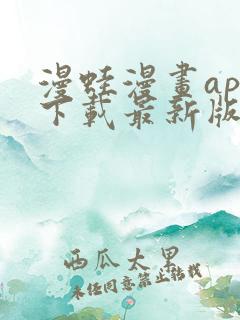 漫蛙漫畫ap
下載最新版
西瓜太男
未经同意禁止转载